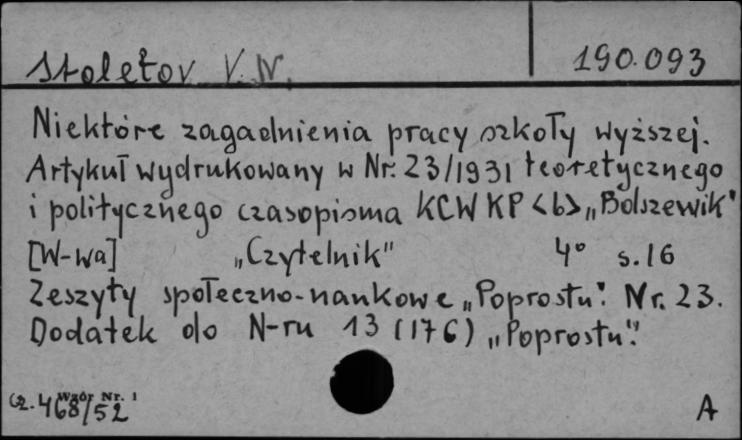 Stoletov V. N.
190.093
Niektóre zagadnienia pracy szkoły wyższej.
Artykuł wydrukowany w Nr. 23/1931 teoretycznego
i politycznego czasopisma KCWKP <b> „Bolszewik"
[W-wa] „Czytelnik" 4° s. 16
Zeszyty społeczno-naukowe „Poprostu". Nr. 23.
Dodatek do N-ru 13 (176) „Poprostu".
Wzór Nr. 1
Cz. 468/52
A